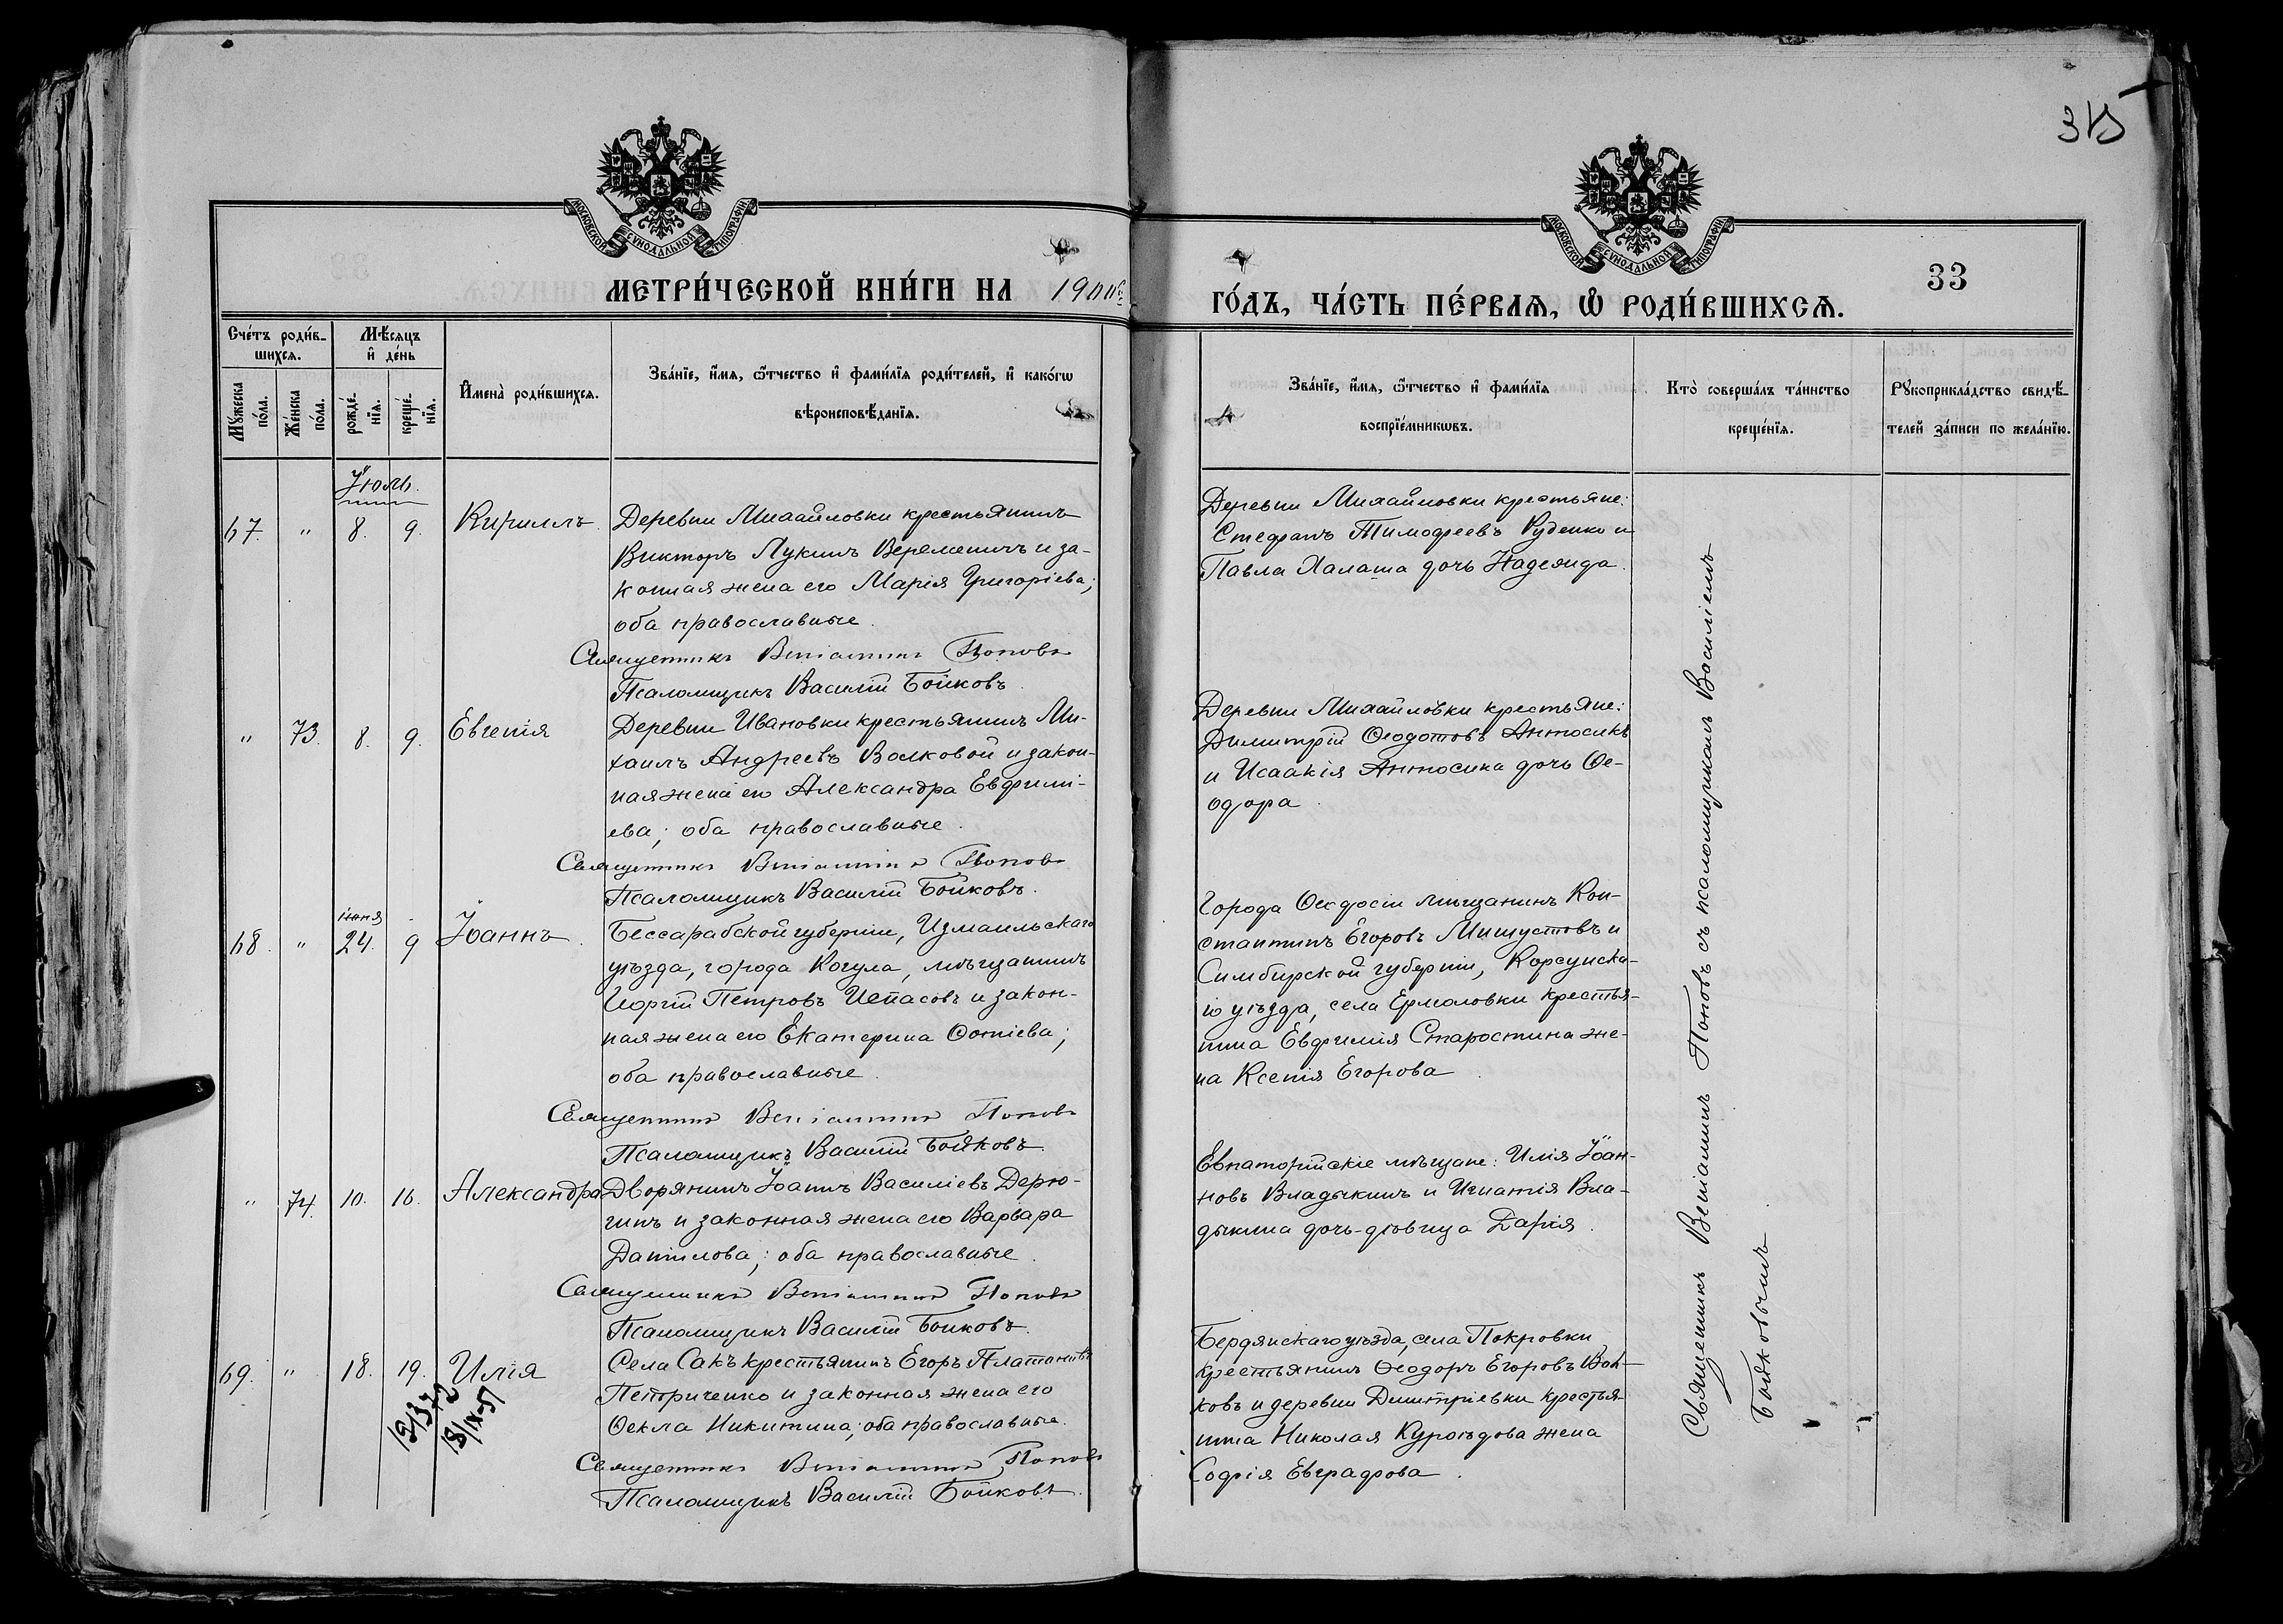 315
МОСКОВСКОЙ СѴНОДАЛЬНОЙ ТИПОГРАФІИ
МОСКОВСКОЙ СѴНОДАЛЬНОЙ ТИПОГРАФІИ
33
МЕТРИ́ЧЕСКОЙ КНИ́ГИ НА 1900й
ГО́ДЪ, ЧА́СТЬ ПЕ́РВАЯ, Ѡ РОДИ́ВШИХСЯ.
Сче́тъ роди́в-
шихся.
Мѣ́сяцъ
и҆ де́нь
Мꙋжеска по́ла.
Же́нска по́ла.
рожде́-нїя.
креще́-нїя.
И҆мена̀ роди́вшихся.
Зва́нїе, и҆́мя, ѻ҆́тчество и҆ фами́лїя роди́телей, и҆ како́гѡ
вѣроисповѣ́данїя.
Зва́нїе, и҆́мя, ѻ҆́тчество и҆ фами́лїя
воспрїе́мникѡвъ.
Кто̀ соверша́лъ та́инство
креще́нїя.
Рꙋкоприкла́дство свидѣ́-
телей за́писи по жела́нїю.
Іюль.
67. " 8. 9. Кириллъ
Деревни Михайловки крестьянинъ
Викторъ Лукинъ Веремеичъ и за-
конная жена его Марія Григоріева;
оба православные.
Священникъ Веніаминъ Поповъ
Псаломщикъ Василій Бойковъ.
Деревни Михайловки крестьяне:
Стефанъ Тимофеевъ Руденко и
Павла Халаша дочь Надежда.
" 73. 8. 9. Евгенія
Деревни Ивановки крестьянинъ Ми-
хаилъ Андреевъ Волковой и закон-
ная жена его Александра Евфимі-
ева; оба православные.
Священникъ Веніаминъ Поповъ
Псаломщикъ Василій Бойковъ.
Деревни Михайловки крестьяне:
Димитрій Ѳеодотовъ Антосикъ
и Исаакія Антосика дочь Ѳе-
одора.
68. " іюня 24. 9 Іоаннъ.
Бессарабской губерніи, Измаильскаго
уѣзда, города Когула, мѣщанинъ
Петровъ и закон-
ная жена его Екатерина Фотіева;
оба православные.
Священникъ Веніаминъ Поповъ
Псаломщикъ Василій Бойковъ.
Города Ѳеодосіи мѣщанинъ Кон-
стантинъ Егоровъ Мишустовъ и
Симбирской губерніи, Корсунска-
го уѣзда, села Ермоловки крестья-
нина Евфимія Старостина же-
на Ксенія Егорова.
" 74. 10. 16. Александра
Дворянинъ Іоаннъ Василіевъ Дерю-
гинъ и законная жена его Варвара
Данилова; оба православные.
Священникъ Веніаминъ Поповъ
Псаломщикъ Василій Бойковъ.
Евпаторійскіе мѣщане: Илія Іоан-
новъ Владыкинъ и Игнатія Вла-
дыкина дочь-дѣвица Дарія.
69. " 18. 19. Илія
Села Сакъ крестьянинъ Егоръ Платоновъ
Петриченко и законная жена его
Ѳекла Никитина; оба православные.
Священникъ Веніаминъ Поповъ
Псаломщикъ Василій Бойковъ.
Бердянскаго уѣзда, села Покровки
крестьянинъ Ѳеодоръ Егоровъ Вол-
ковъ и деревни Димитріевки крестья-
нина Николая Куроѣдова жена
Софія Евграфова.
18/IX-51
Священникъ Веніаминъ Поповъ съ псаломщикомъ Василіемъ
Бойковымъ.